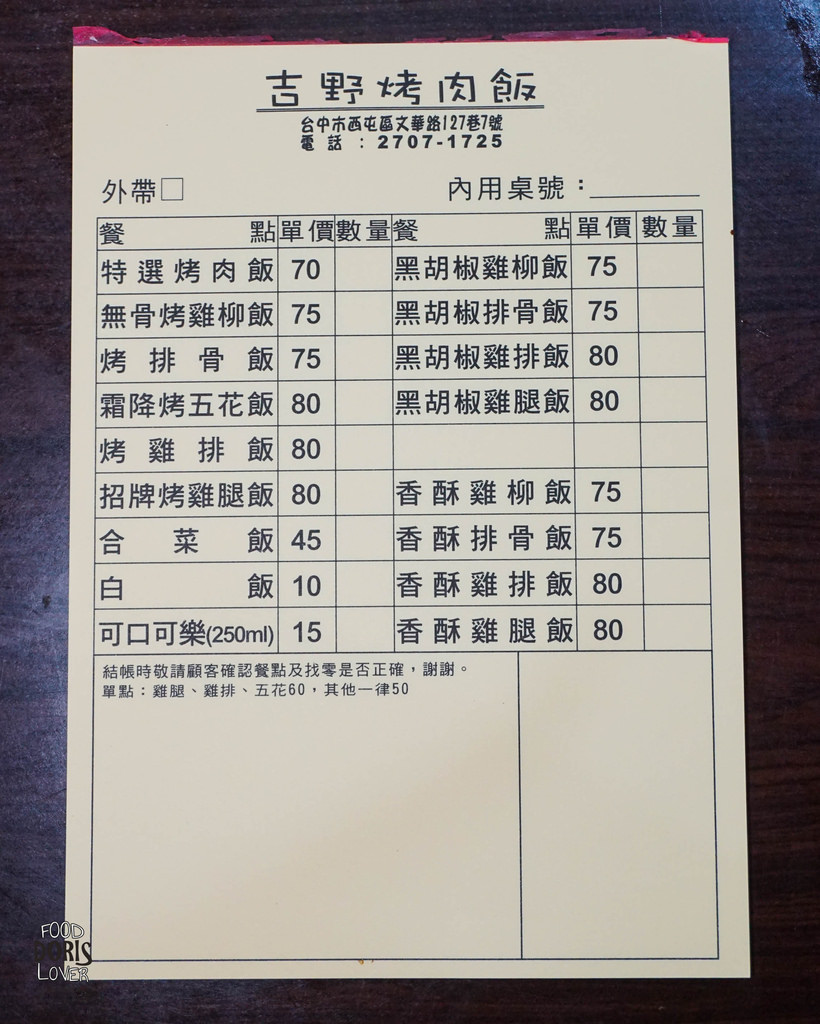 吉野烤肉飯
台中市西屯區文華路127巷7號
電話：2707-1725
外帶□ 內用桌號：
餐點 單價 數量 餐點 單價 數量
特選烤肉飯 70 黑胡椒雞柳飯 75
無骨烤雞柳飯 75 黑胡椒排骨飯 75
烤排骨飯 75 黑胡椒雞排飯 80
霜降烤五花飯 80 黑胡椒雞腿飯 80
烤雞排飯 80
招牌烤雞腿飯 80 香酥雞柳飯 75
合菜飯 45 香酥排骨飯 75
白飯 10 香酥雞排飯 80
可口可樂(250ml) 15 香酥雞腿飯 80
結帳時敬請顧客確認餐點及找零是否正確，謝謝。
單點：雞腿、雞排、五花60，其他一律50
FOOD
DORIS
LOVER